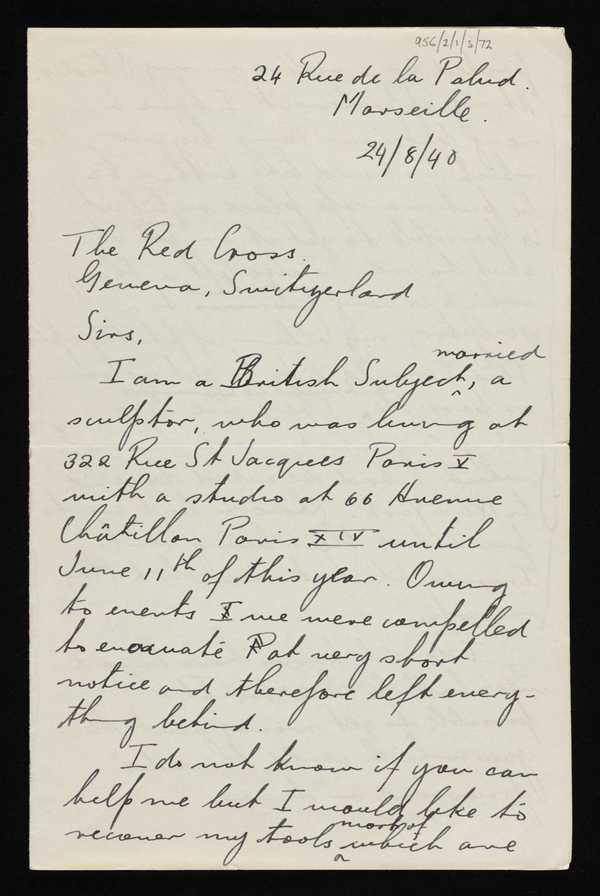 956/2/1/3/72
24 Rue de la Palud.
Marseille.
24/8/40
The Red Cross.
Geneva, Switzerland
Sirs,
married
I am a British Subject, a
sculptor, who was living at
322 Rue St Jacques Paris V
with a studio at 66 Avenue
Châtillon Paris XIV until
June 11th of this year. Owing
to events we were compelled
to evacuate at very short
notice and therefore left every-
thing behind.
I do not know if you can
help me but I would like to
most of
recover my tools which are